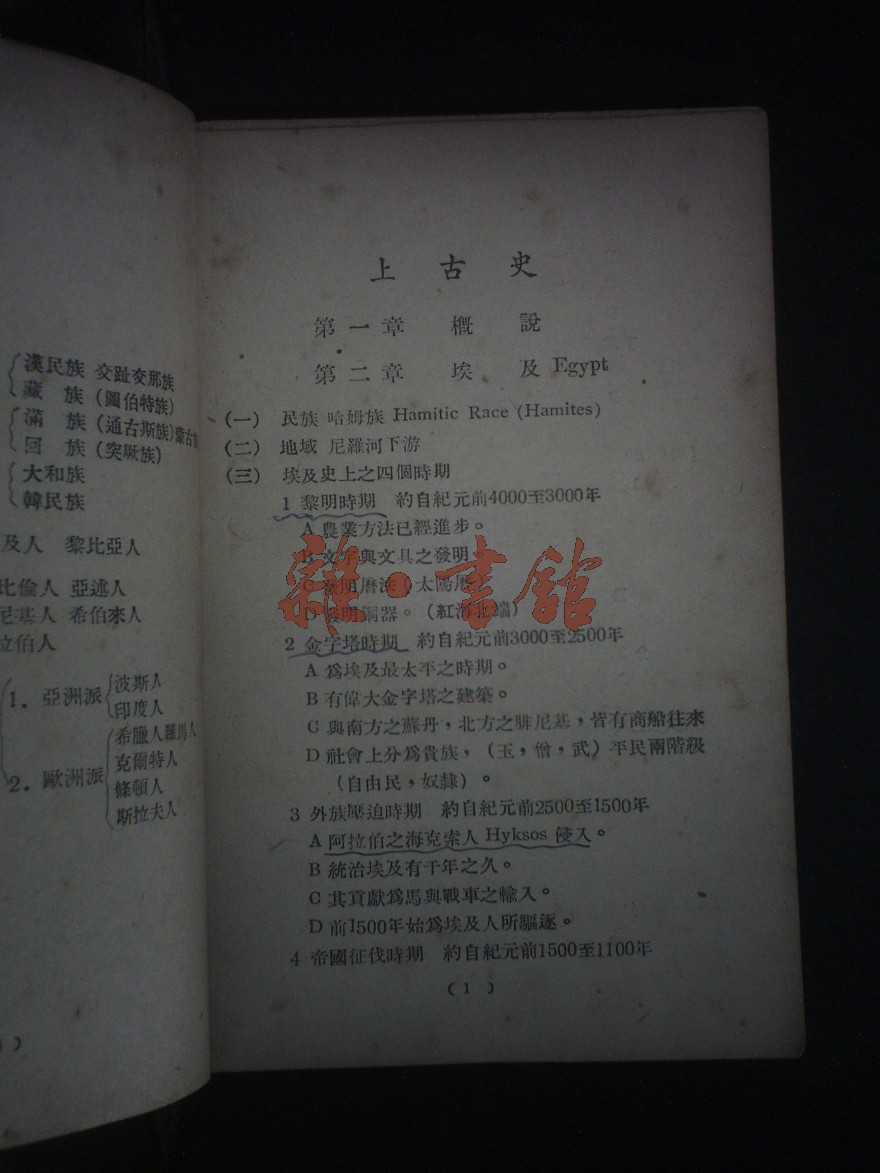 漢民族 交趾交那族
藏 族 (圖伯特族)
滿 族 (通古斯族)蒙古
回 族 (突厥族)
大和族
韓民族
及人 黎比亞人
比倫人 亞述人
尼基人 希伯來人
拉伯人
1. 亞洲派
波斯人
印度人
2. 歐洲派
希臘人羅馬人
克爾特人
條頓人
斯拉夫人
上古史
第一章 概 說
第二章 埃 及 Egypt
(一) 民族 哈姆族 Hamitic Race (Hamites)
(二) 地域 尼羅河下游
(三) 埃及史上之四個時期
1 黎明時期 約自紀元前4000至3000年
A 農業方法已經進步。
B 文字與文具之發明。
C 發明曆法(太陽曆)
D 發明銅器。(紅海北端)
2 金字塔時期 約自紀元前3000至2500年
A 爲埃及最太平之時期。
B 有偉大金字塔之建築。
C 與南方之蘇丹,北方之腓尼基,皆有商船往來
D 社會上分爲貴族,(玉,僧,武)平民兩階級
(自由民,奴隸)。
3 外族壓迫時期 約自紀元前2500至1500年
A 阿拉伯之海克索人 Hyksos 侵入。
B 統治埃及有千年之久。
C 其貢獻爲馬與戰車之輸入。
D 前1500年始爲埃及人所驅逐。
4 帝國征伐時期 約自紀元前1500至1100年
(1)
雜·書館